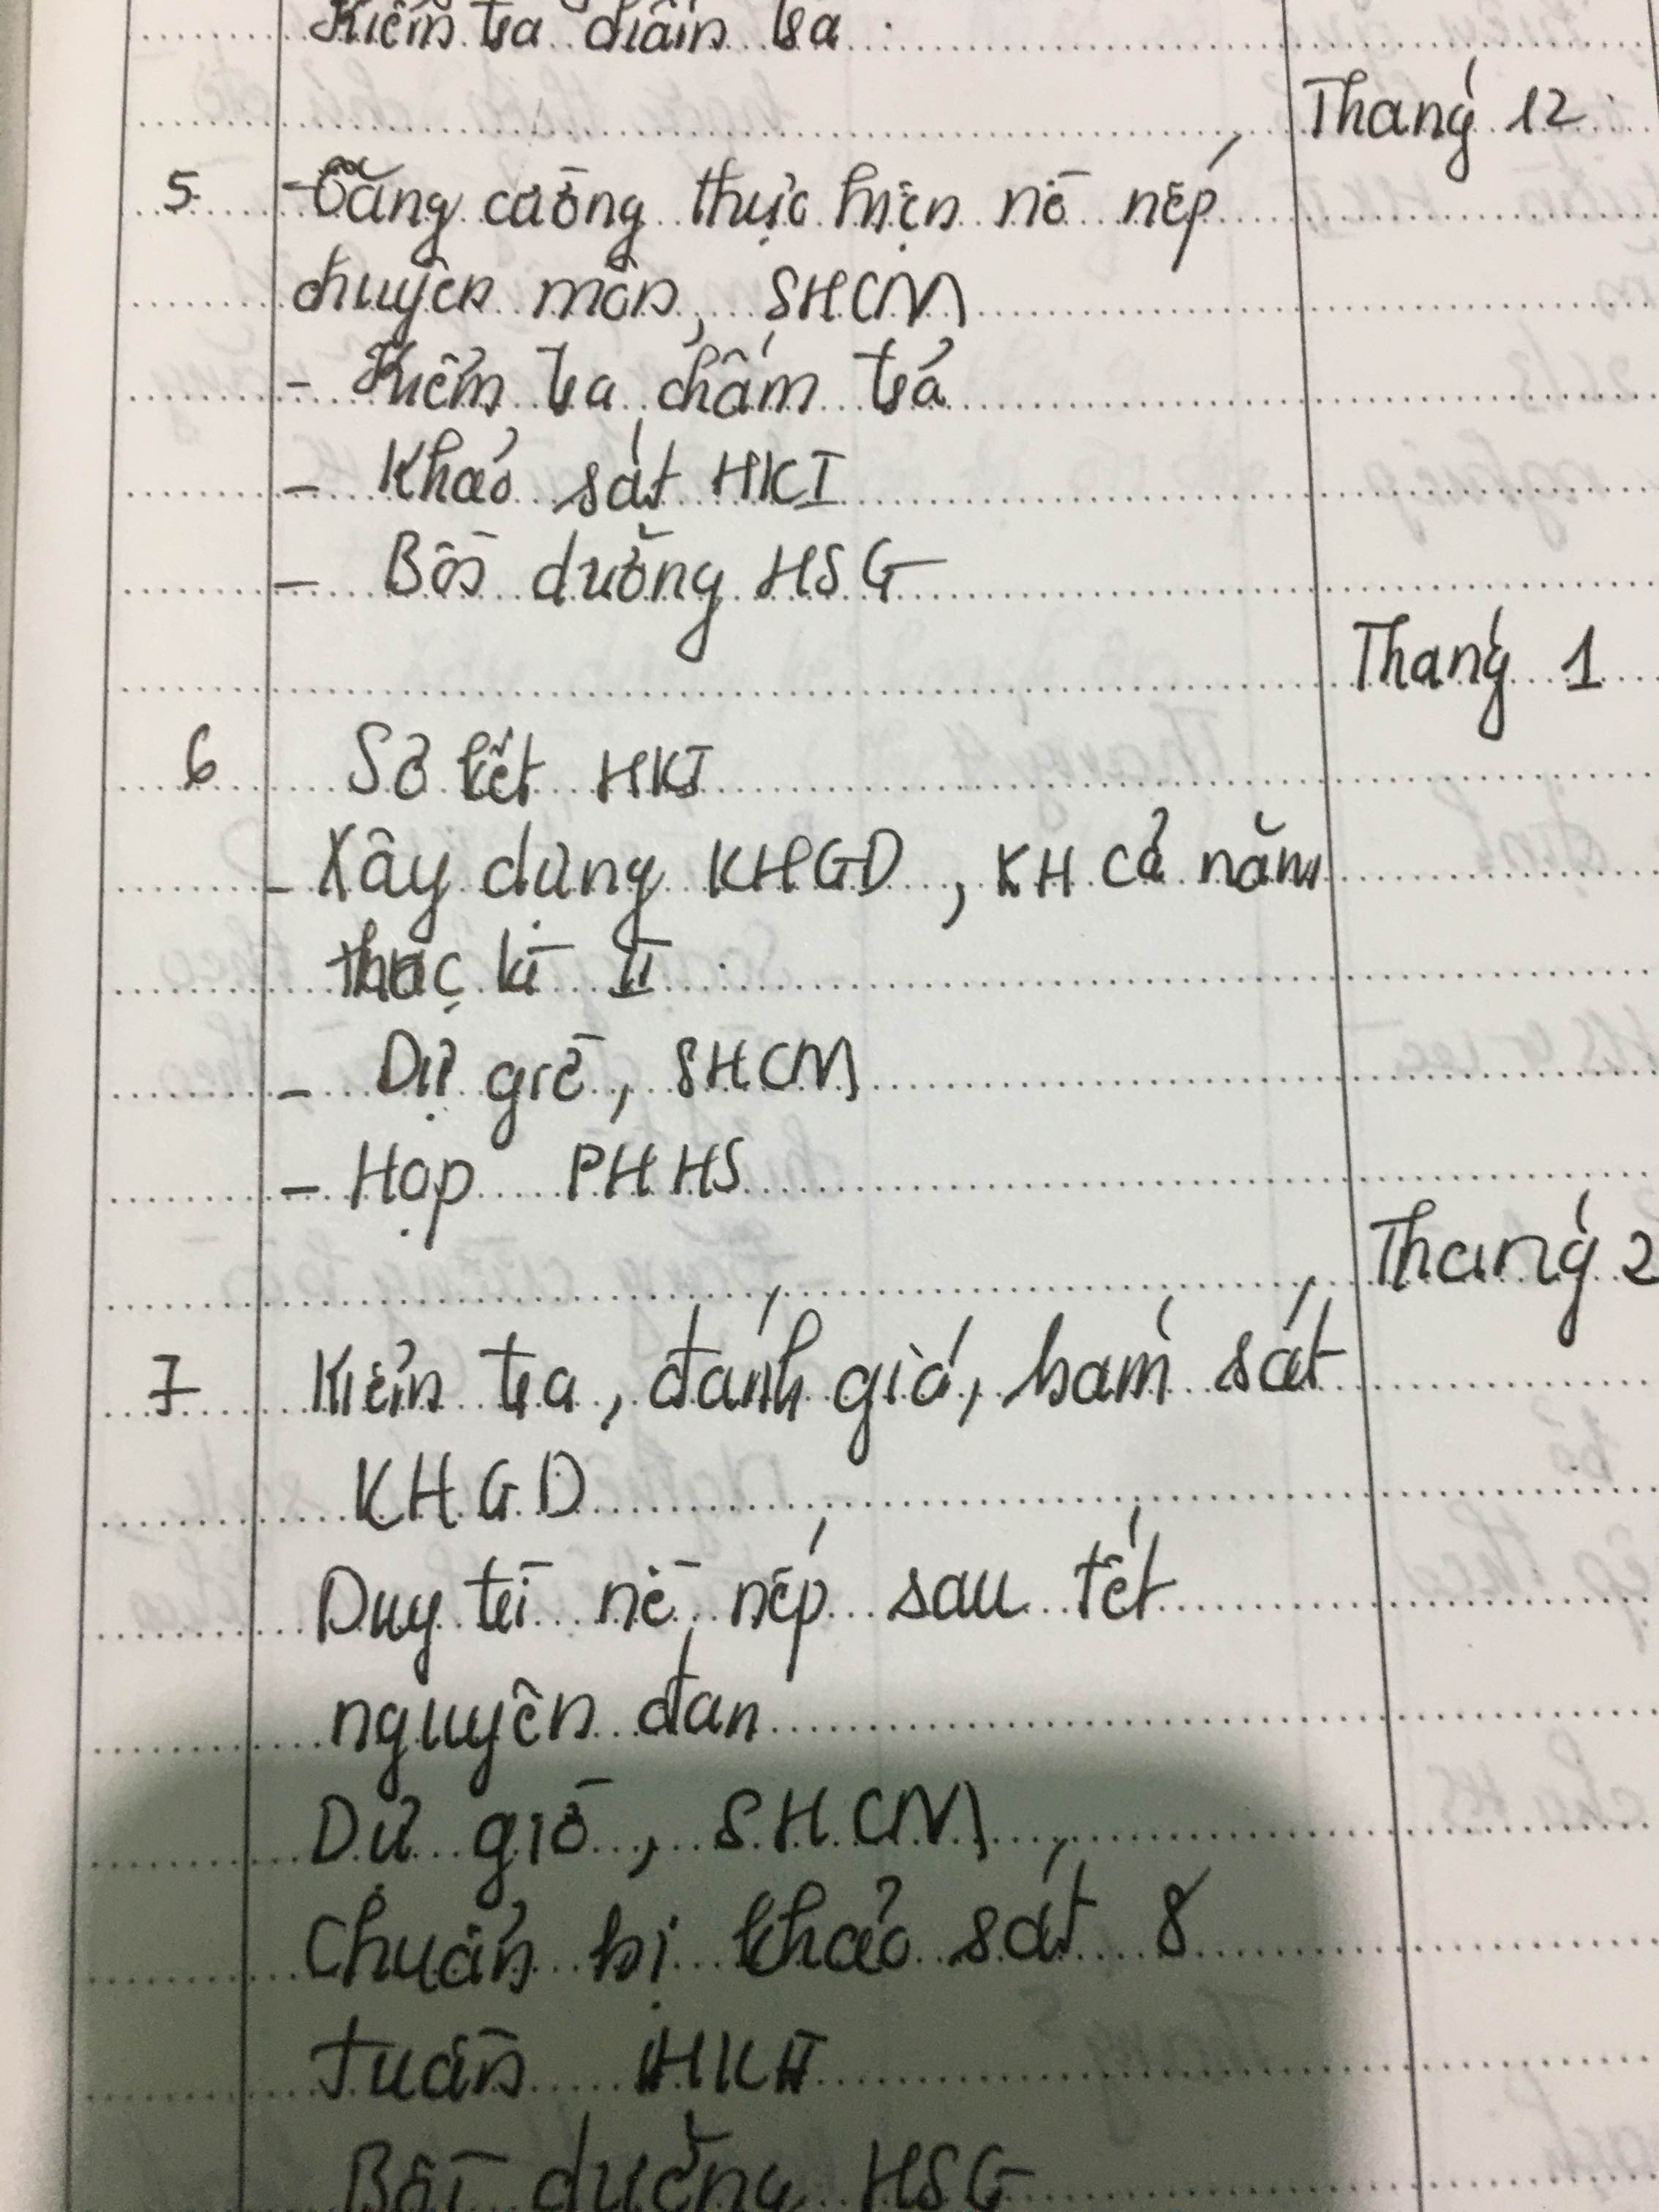 Kiểm tra chấm tra
Tháng 12
5 - Tăng cường thực hiện nề nếp
chuyên môn, SHCM
- Kiểm tra chấm trả
- Khảo sát HKI
- Bồi dưỡng HSG
Tháng 1
6 Sơ kết HKI
- Xây dựng KHGD, KH cả năm
học kì II
- Dự giờ, SHCM
- Họp PHHS
Tháng 2
7 Kiểm tra, đánh giá, bám sát
KHGD
Duy trì nề nếp sau tết
nguyên đan
Dự giờ, SHCM
Chuẩn bị khảo sát 8
tuần HKII
Bồi dưỡng HSG